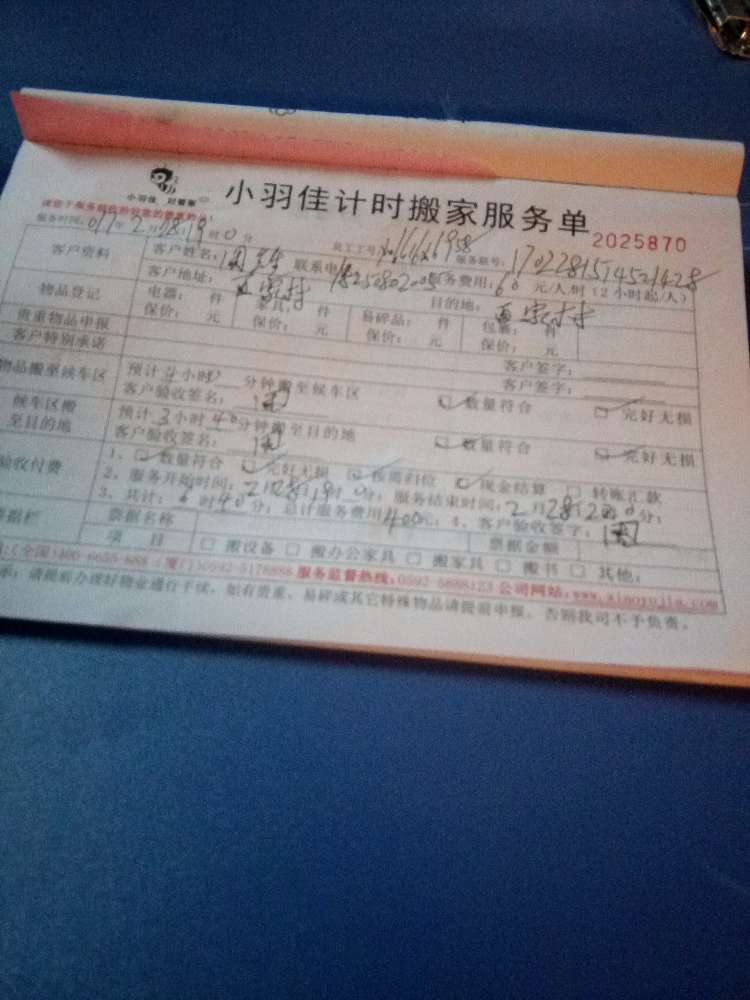 小羽佳 好管家
小羽佳计时搬家服务单
2025870
服务时间: 017年 2月28日19时0分 员工工号: 服务联号:
客户资料 客户姓名: 周先生 联系电 务费用: 60 元/人/时 (2小时起/人)
客户地址: 目的地:
物品登记 电器: 件 家具: 件 易碎品: 件 包裹: 件
保价: 元 保价: 元 保价: 元 保价: 元
贵重物品申报 客户签字:
客户特别承诺 客户签字:
物品搬至候车区 预计 小时 分钟搬至候车区 数量符合 完好无损
客户验收签名: 周
候车区搬至目的地 预计3小时40分钟搬至目的地 数量符合 完好无损
客户验收签名: 周
验收付费 1、 数量符合 完好无损 按需归位 现金结算 转账汇款
2、服务开始时间: 2月28日19时0分; 服务结束时间: 2月28日 分;
3、共计: 6时40分; 总计服务费用400元; 4、客户验收签字: 周
票据栏 票据名称 票据金额
项 目 搬设备 搬办公家具 搬家具 搬书 其他:
(全国)400-6655-888 (厦门)0592-5178888 服务监督热线:0592-5888123 公司网站:www.xiaoyujia.com
示: 请提前办理好物业通行手续, 如有贵重、易碎或其它特殊物品请提前申报, 否则我司不予负责。